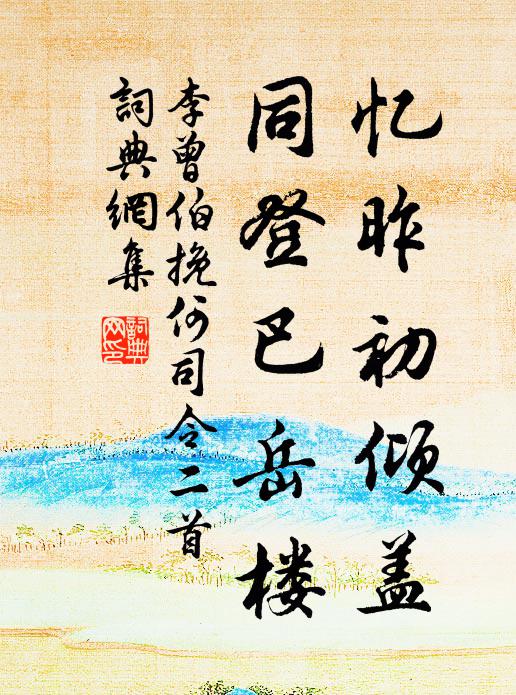 忆昨初倾盖
同登巴岳楼
李曾伯挽何司令二首
詞典網集
詞典网印